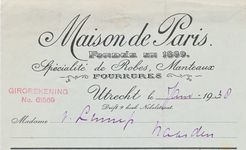 Maison de Paris.
Fondée en 1889.
Spécialité de Robes, Manteaux
FOURRURES
GIROREKENING
No. 61569
Utrecht, 1938
Drift 9 hoek Nobelstraat
Madame
Naarden